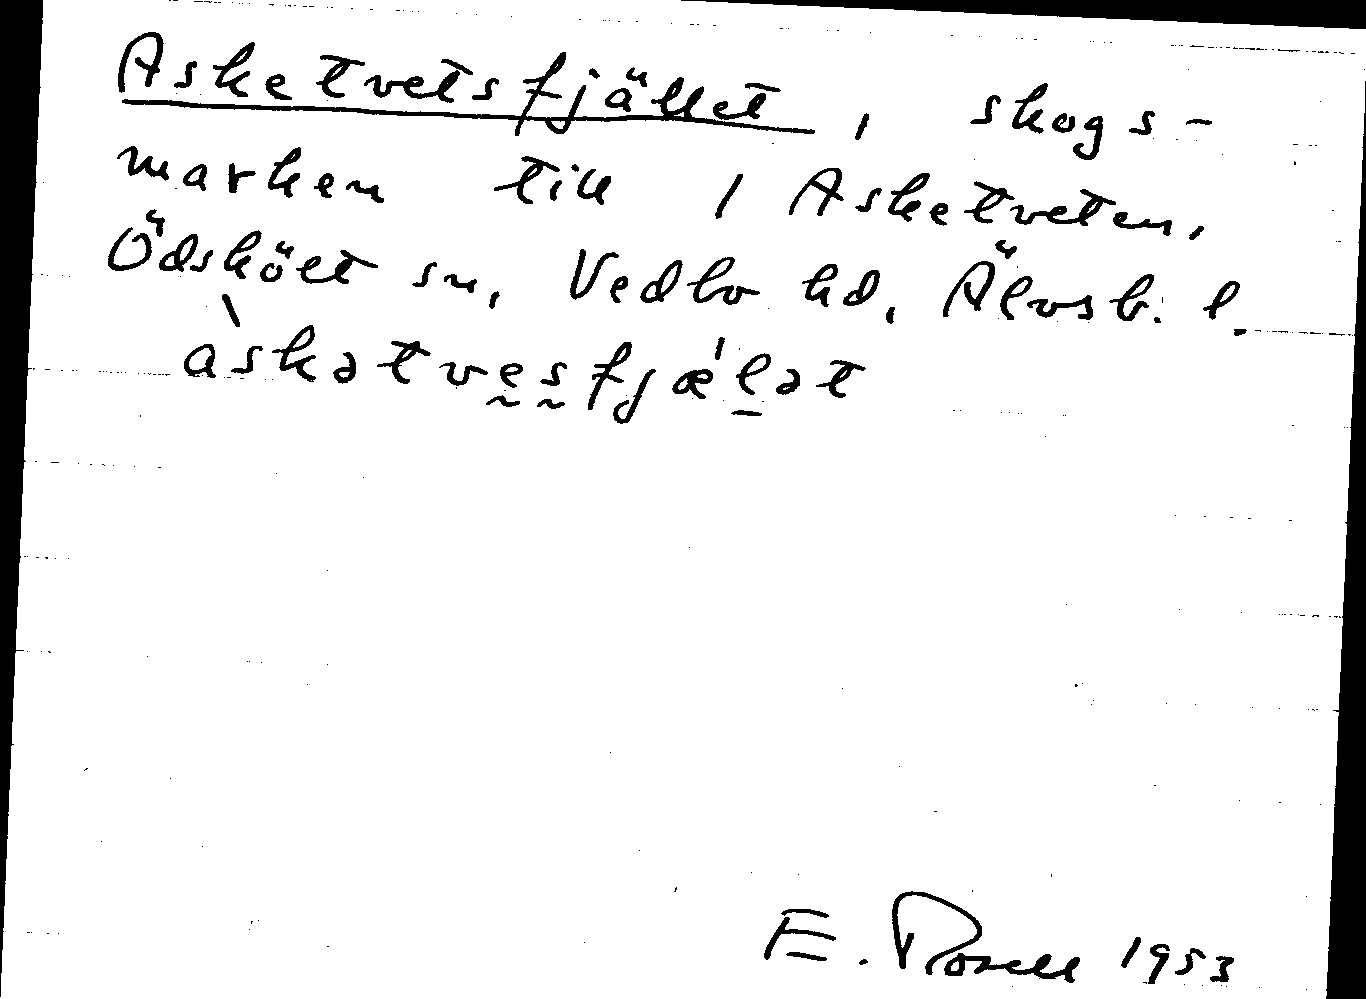 Asketvetsfjället, skogs-
marken till 1 Asketveten,
Ödskölt sn, Vedbo hd, Älvsb. l.
àskətvesfjǽlət
E. Rosell 1953